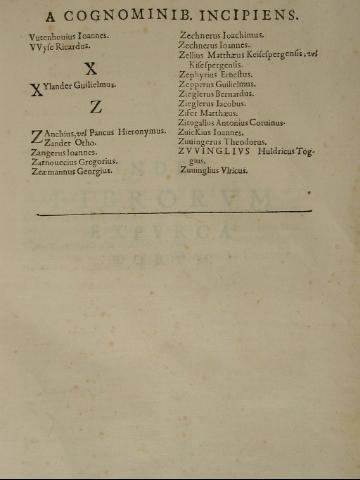 A COGNOMINIB. INCIPIENS.
Vutenhouius Ioannes.
VVyse Ricardus.
X
XYlander Guilielmus.
Z
ZAnchius, vel Pancus Hieronymus.
Zander Otho.
Zangerus Ioannes.
Zarnouecius Gregorius.
Zeæmannus Georgius.
Zechnerus Ioachimus.
Zechnerus Ioannes.
Zellius Matthæus Keisespergensis, vel
Kisespergensis.
Zephyrius Ernestus.
Zepperus Guilielmus.
Zieglerus Bernardus.
Zieglerus Iacobus.
Zifer Matthæus.
Zirogallus Antonius Coruinus.
ZuicKius Ioannes.
Zuuingerus Theodorus.
ZVVINGLIVS Huldricus Tog-
gius.
Zuuinglius Vlricus.